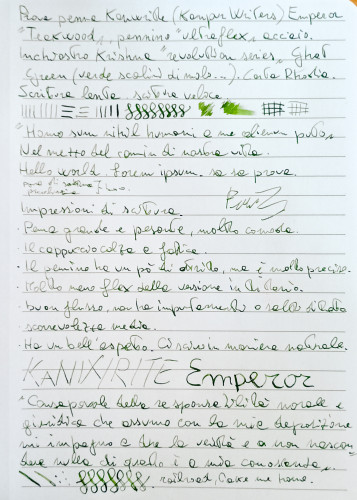 Prova penna Kanwrite (Kanpur Writers) Emperor
"Teakwood", pennino "ultraflex" acciaio.
Inchiostro Krishna "revolution series" Ghat
Green (verde scalini di molo...). Carta Rhodia.
Scrittura lenta, scrittura veloce.
"Homo sum nihil humani a me alienum puto".
Nel mezzo del camin di nostra vita.
Hello world. Lorem ipsum. sa sa prova.
prova di scrittura
Impressioni di scrittura.
- Penna grande e pesante, molto comoda.
- Il cappuccio calza a fatica.
- Il pennino ha un po' di attrito, ma è molto preciso.
- Molto meno flex della versione in titanio.
- buon flusso, non ha impuntamenti o salti di tratto
scorrevolezza media.
- Ha un bell'aspetto. Si scrive in maniera naturale.
KANWRITE Emperor
"Consapevole della responsabilità morale e
giuridica che assumo con la mia deposizione
mi impegno a dire la verità e a non nascon
dere nulla di quanto è a mia conoscenza
railroad, take me home.